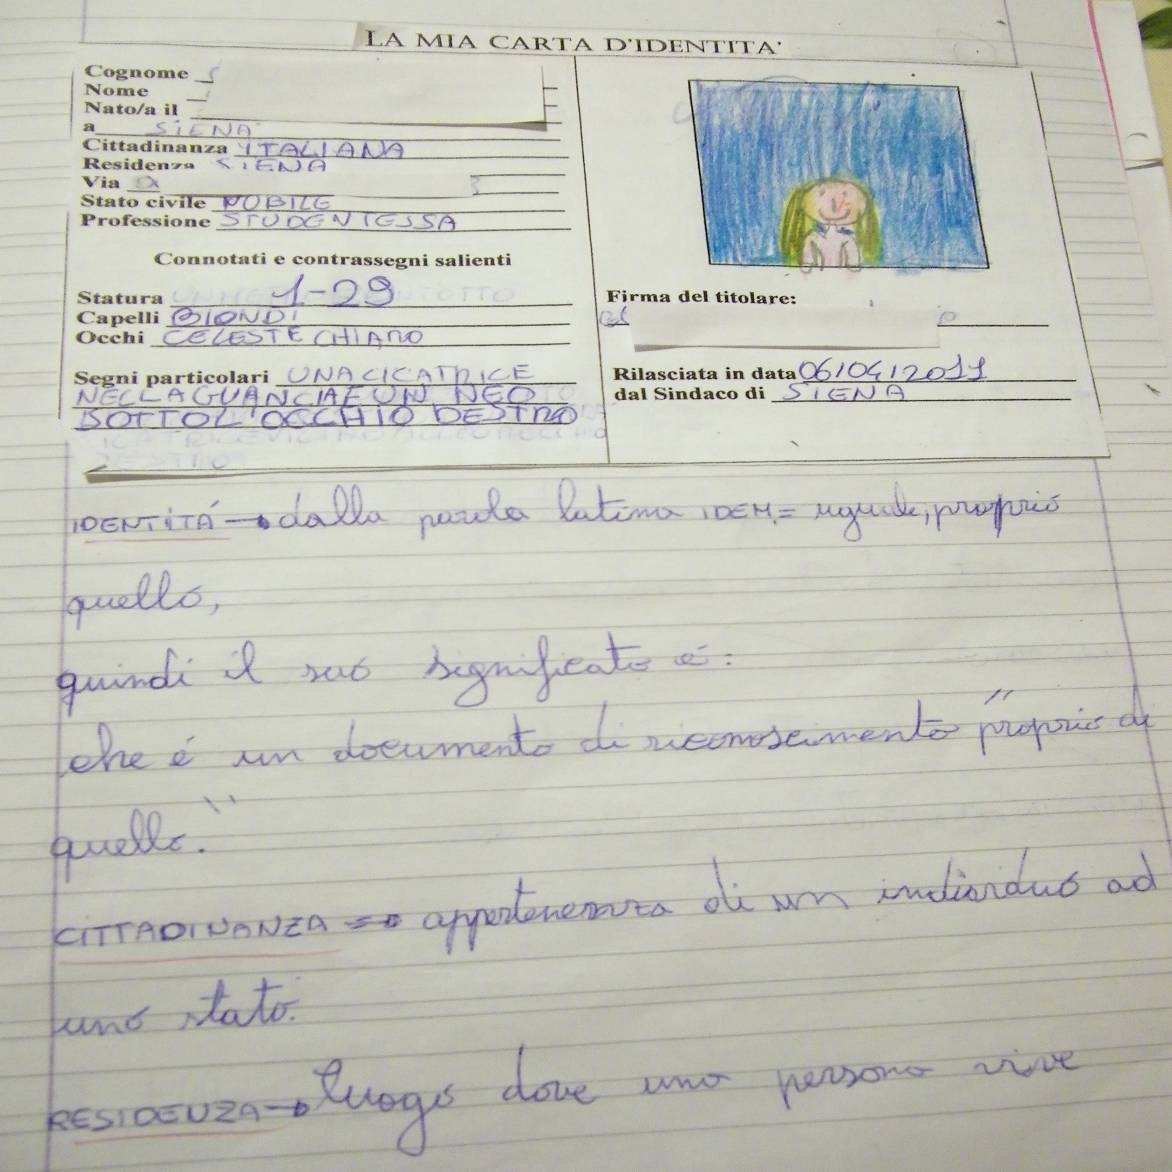 LA MIA CARTA D'IDENTITA'
Cognome
Nome
Nato/a il
a SIENA
Cittadinanza ITALIANA
Residenza SIENA
Via
Stato civile NOBILE
Professione STUDENTESSA
Connotati e contrassegni salienti
Statura 1-29
Capelli BIONDI
Occhi CELESTE CHIARO
Segni particolari UNA CICATRICE
NELLA GUANCIA E UN NEO
SOTTO L'OCCHIO DESTRO
Firma del titolare:
Rilasciata in data 06/04/2011
dal Sindaco di SIENA
IDENTITÁ → dalla parola latina IDEM = uguale, proprio
quello,
quindi il suo significato é:
che é un documento di riconoscimento "proprio di
quello."
CITTADINANZA → appartenenza di un individuo ad
uno stato.
RESIDENZA → luogo dove una persona vive